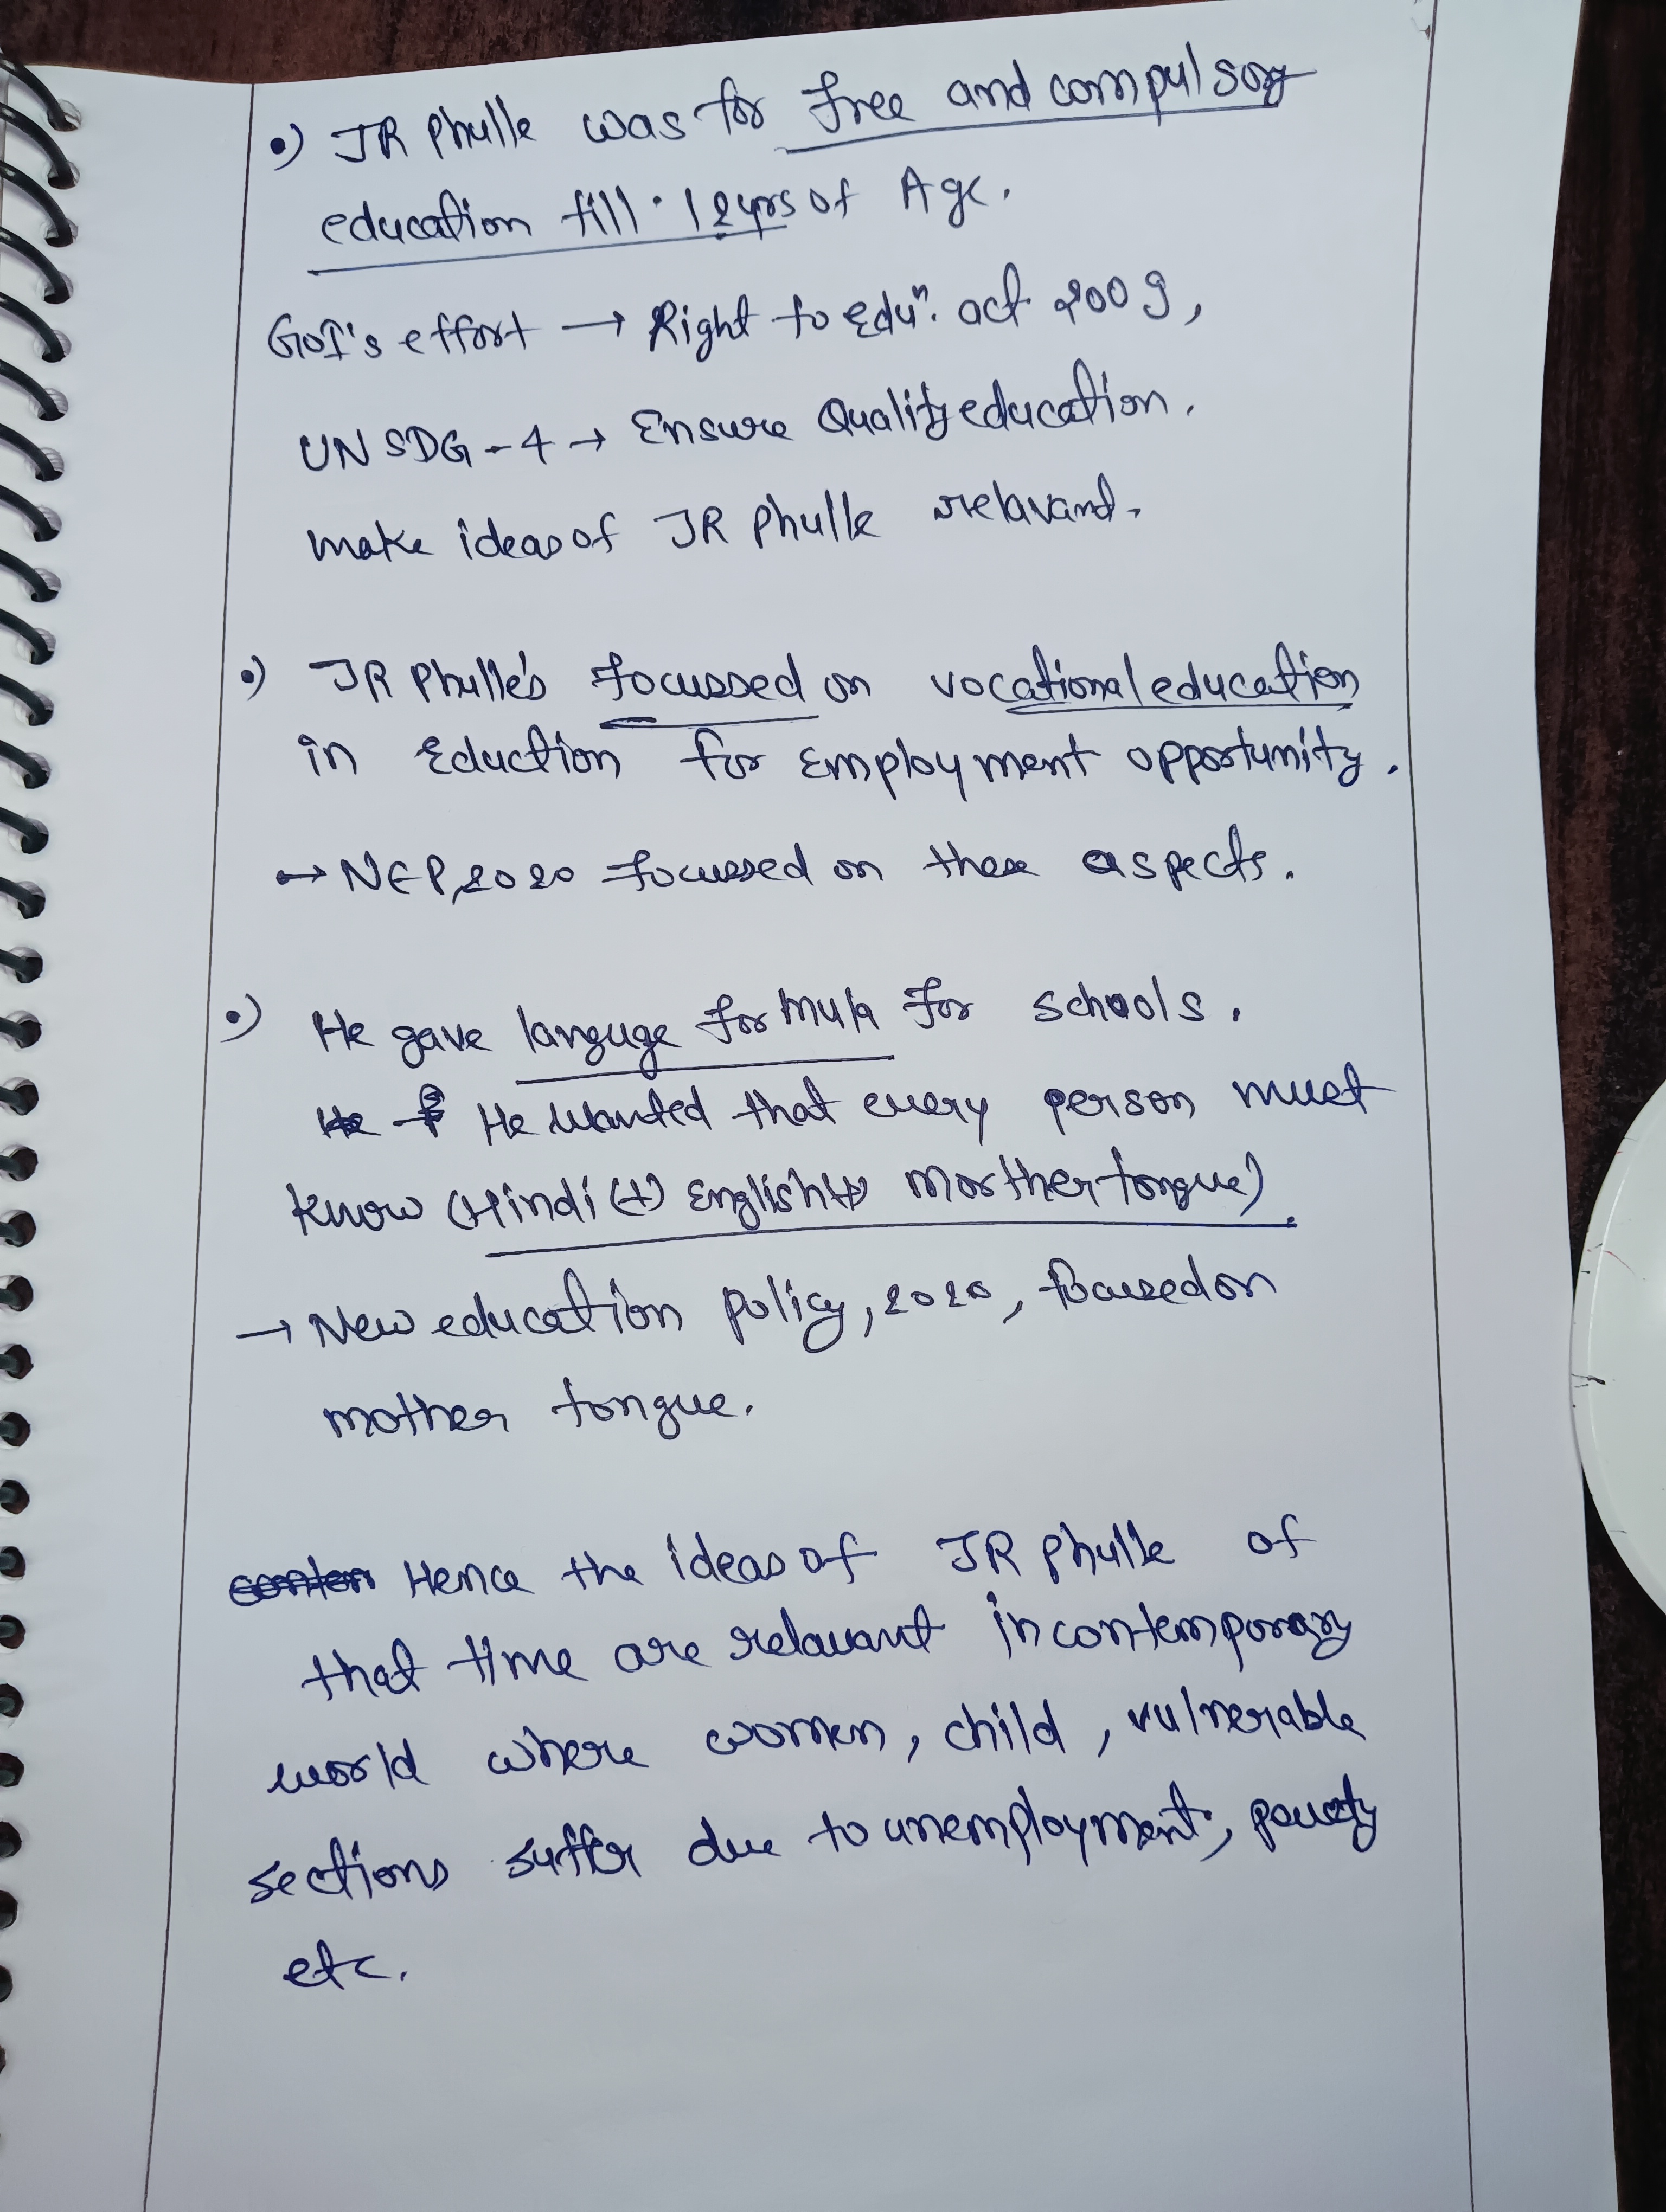 •) JR Phulle was for free and compulsory
education till 12yrs of Age.
GoI's effort → Right to Eduⁿ. act 2009,
UN SDG-4 → Ensure Quality education.
make ideas of JR Phulle relavant.
•) JR Phulle's focussed on vocational education
in Eduction for Employment opportunity.
→ NEP, 2020 focussed on these aspects.
•) He gave languge formula for schools.
He He wanted that every person must
know (Hindi (+) English (+) Morther tongue).
→ New education policy, 2020, focused on
mother tongue.
Hence the ideas of JR Phulle of
that time are relavant in contemporary
world where women, child, vulnerable
sections suffer due to unemployment, poverty
etc.